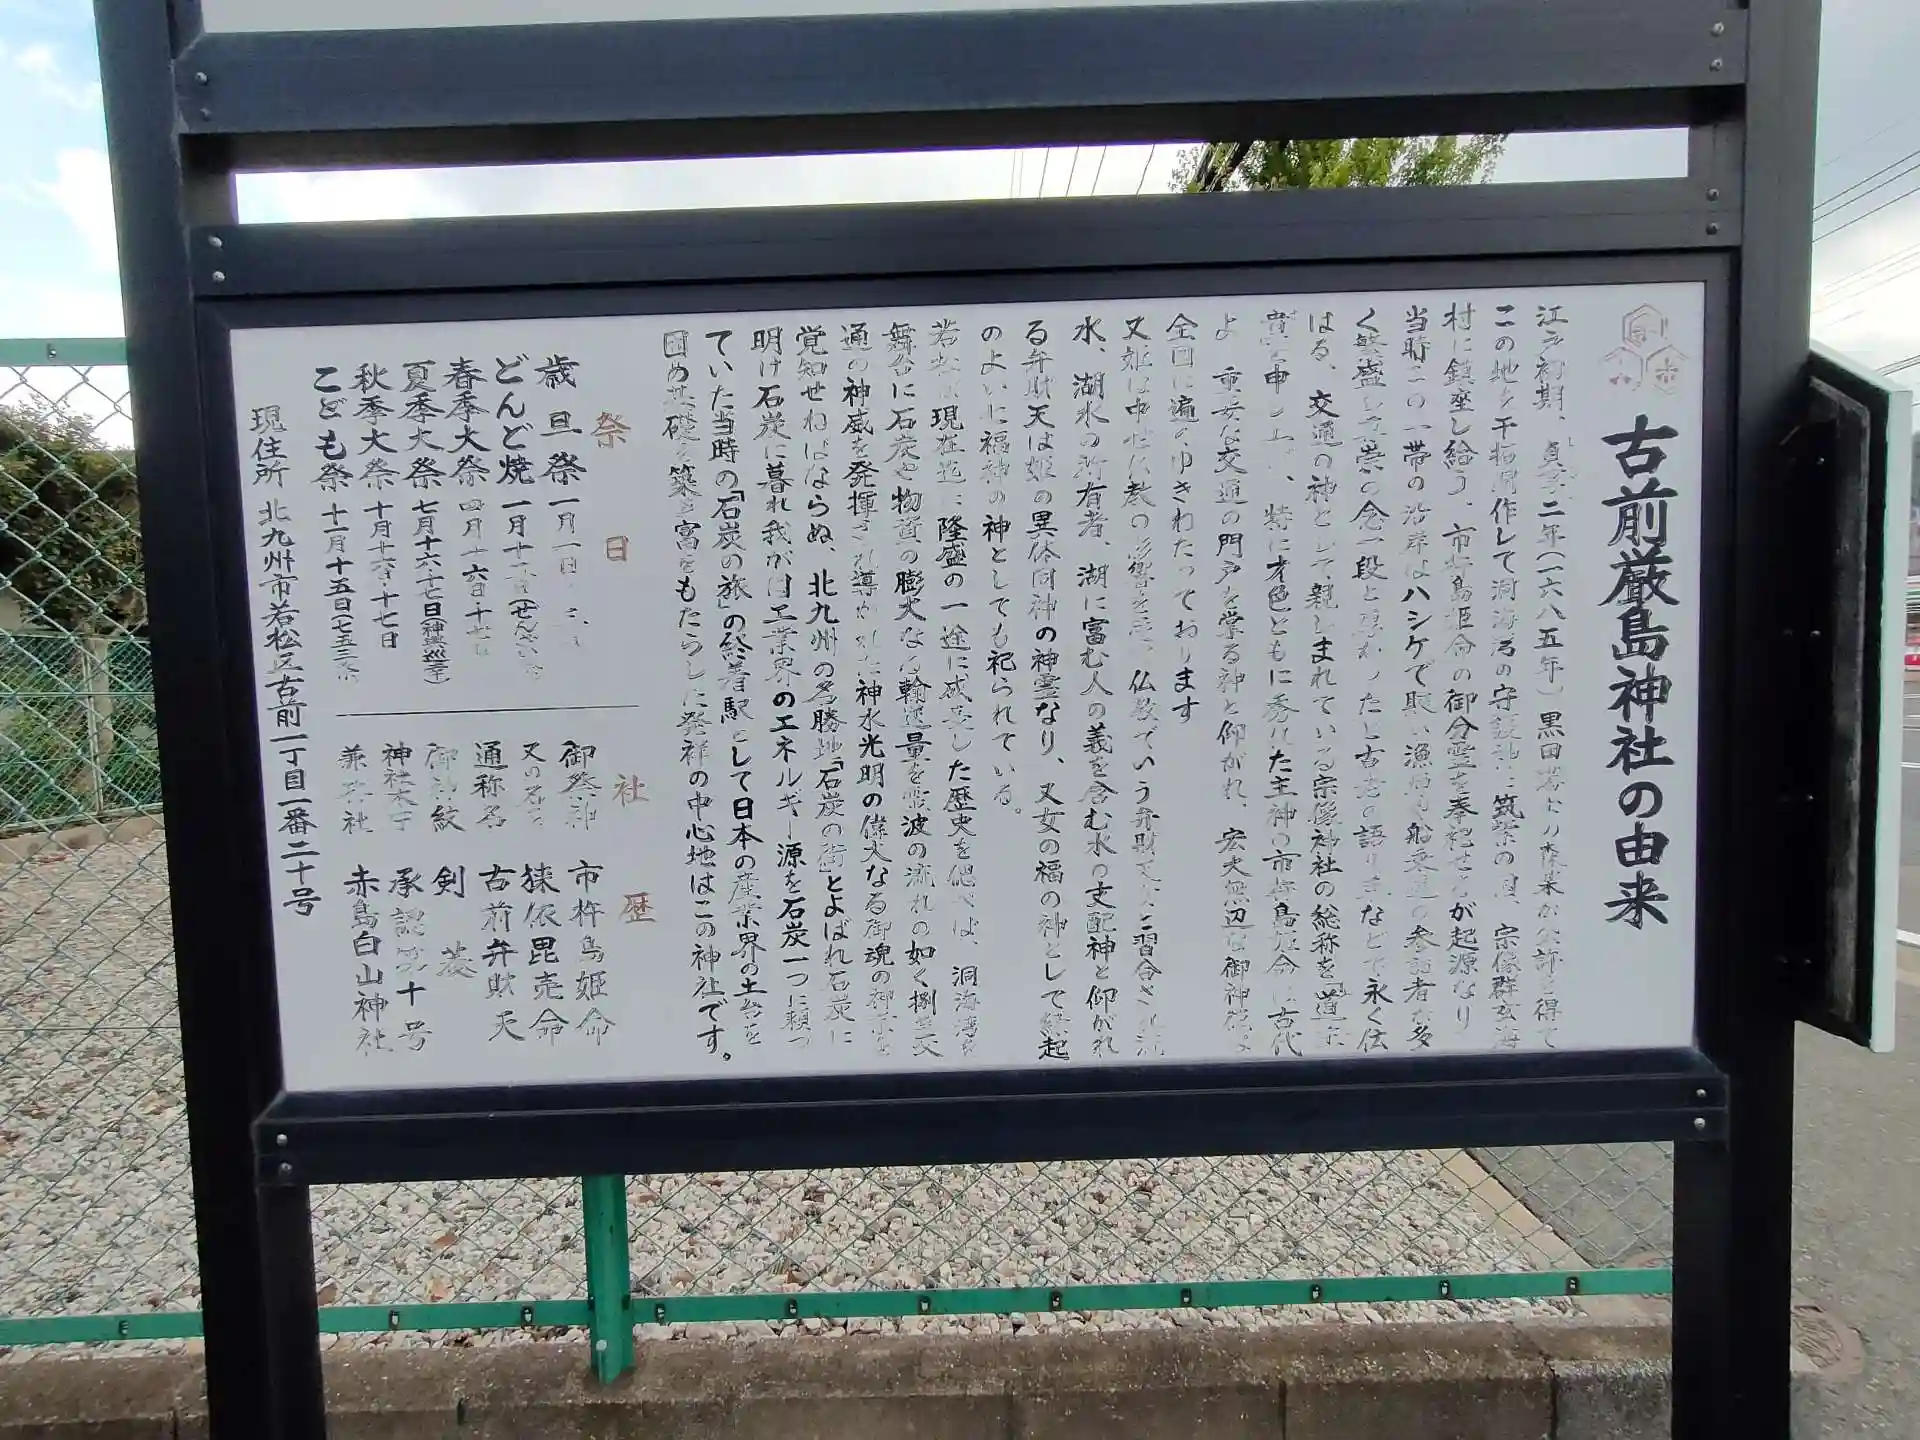 古前厳島神社の由来
江戸初期、貞享二年(一六八五年)黒田藩よりの森某が公許を得て
この地を干拓開作して洞海湾の守護神に筑紫の国、宗像郡玄海
村に鎮座し給う、市杵島姫命の御分霊を奉祀せるが起源なり
当時この一帯の沿岸はハシケで賑い漁師や船乗達の参詣者な多
く繁盛し尊崇の念一段と深かったと古老の語り草などで永く伝
はる、交通の神として親しまれている宗像神社の総称を「道
貴」と申し上げ、特に才色ともに秀れた主神の市杵島姫命は古代
より重要な交通の門戸を掌る神と仰がれ、宏大無辺な御神徳は
全国に遍くゆきわたっております
又姫は中世仏教の影響を受け仏教でいう弁財天女に習合され
水、湖水の所有者、湖に富む人の義を含む水の支配神と仰がれ
る弁財天は姫の異体同神の神霊なり、又女の福の神として縁起
のよいに福神の神としても祀られている。
若松が現在迄に隆盛の一途に成長した歴史を偲べば、洞海湾を
舞台に石炭や物資の膨大なる輸送量を雲波の流れの如く捌き交
通の神威を発揮され導かれた神水光明の偉大なる御魂の神示を
覚知せねばならぬ、北九州の名勝地「石炭の街」とよばれ石炭に
明け石炭に暮れ我が国工業界のエネルギー源を石炭一つに頼っ
ていた当時の「石炭の旅」の終着駅として日本の産業界の土台を
固め基礎を築き富をもたらした発祥の中心地はこの神社です。
祭日
歳旦祭 一月一日
どんど焼 一月十
春季大祭 四月十六日十七日
夏季大祭 七月十六十七日(神輿巡幸)
秋季大祭 十月十六日十七日
こども祭 十一月十五日(七五三祭
社歴
御祭神 市杵島姫命
又の名を 狭依毘売命
通称名 古前弁財天
御神紋 剣菱
神社本庁 承認第六十号
兼務社 赤島白山神社
現住所 北九州市若松区古前一丁目一番二十号